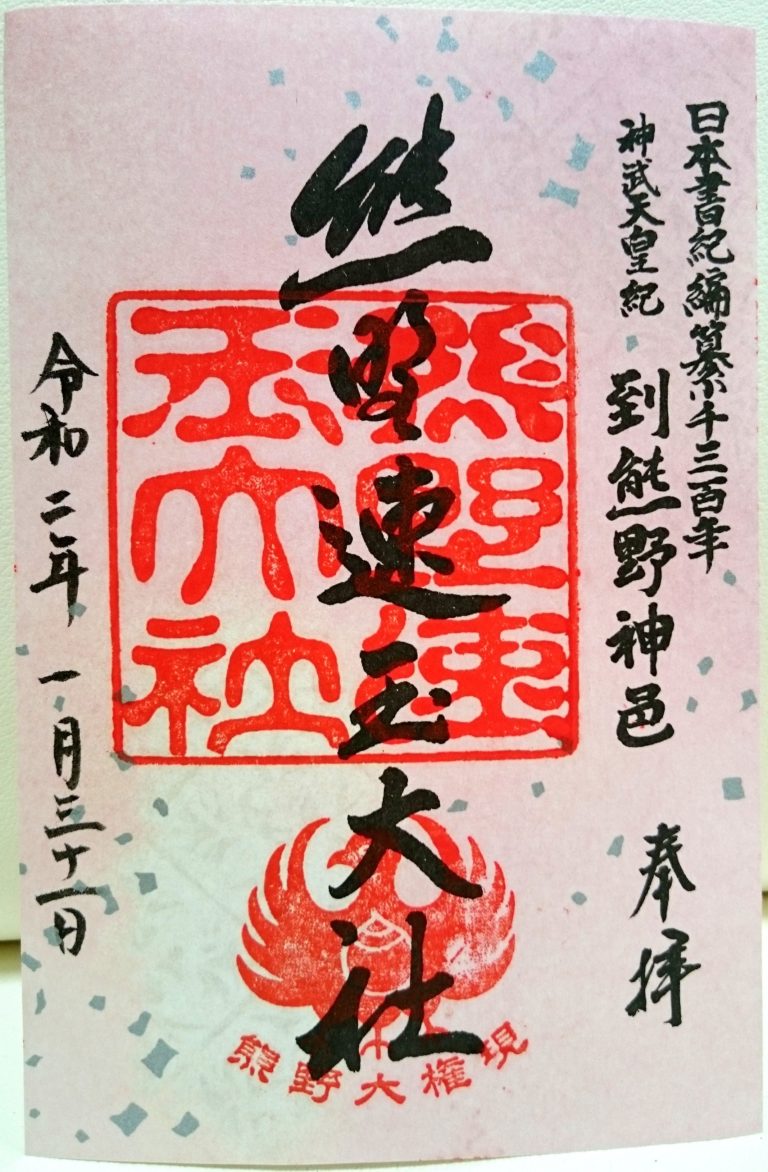 日本書紀編纂千三百年
神武天皇紀
到熊野神邑
奉拝
熊野速玉大社
熊野速玉大社
熊野大権現
令和二年一月三十一日